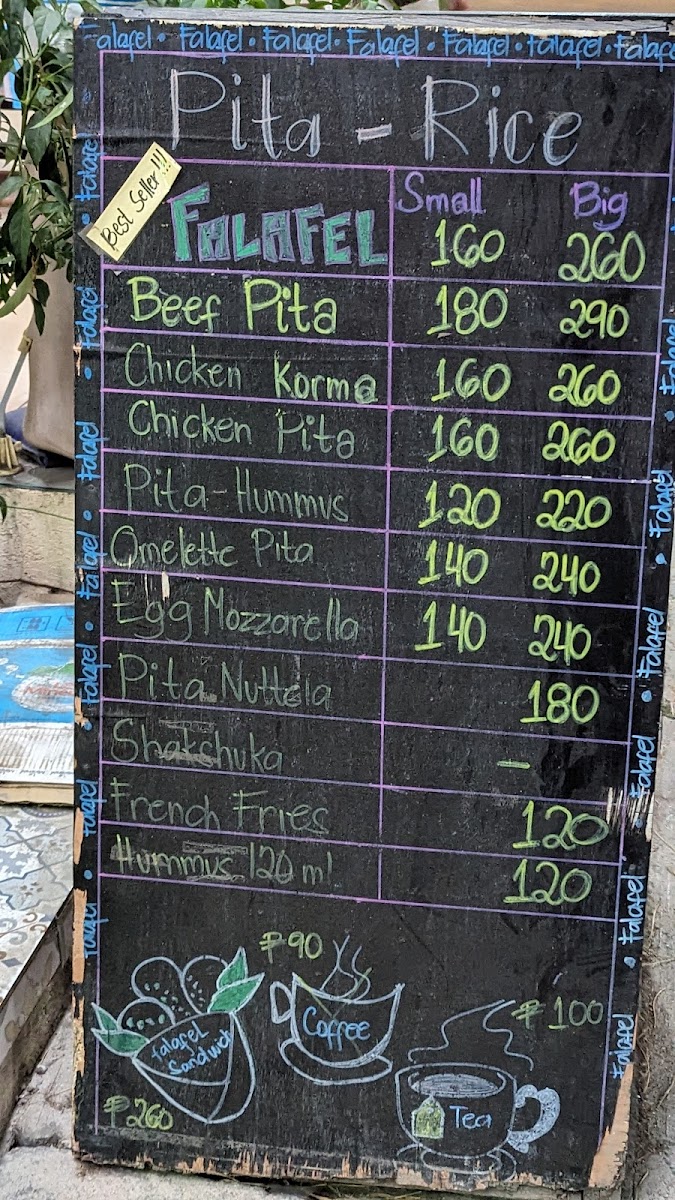 Falafel • Falafel • Falafel • Falafel • Falafel • Falafel • Falafel
Pita - Rice
Best Seller!!!
Small Big
FALAFEL 160 260
Beef Pita 180 290
Chicken Korma 160 260
Chicken Pita 160 260
Pita-Hummus 120 220
Omelette Pita 140 240
Egg Mozzarella 140 240
Pita Nuttela 180
Shakchuka -
French Fries 120
Hummus 120 ml 120
₱90
Coffee
₱100
Falafel Sandwich
₱260
Tea
Falafel • Falafel • Falafel • Falafel • Falafel • Falafel • Falafel
Falafel • Falafel • Falafel • Falafel • Falafel • Falafel